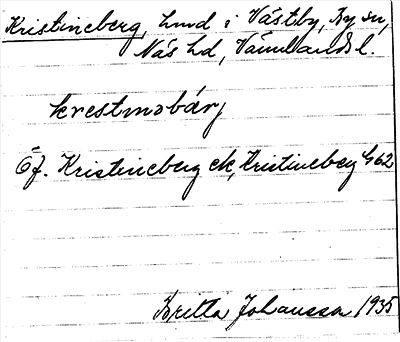 Kristineberg, lund i Västby, By sn,
Näs hd, Värmlands l.
krestinəbärj
Öf. Kristineberg ek, Kristineberg G62
Britta Johansson 1935